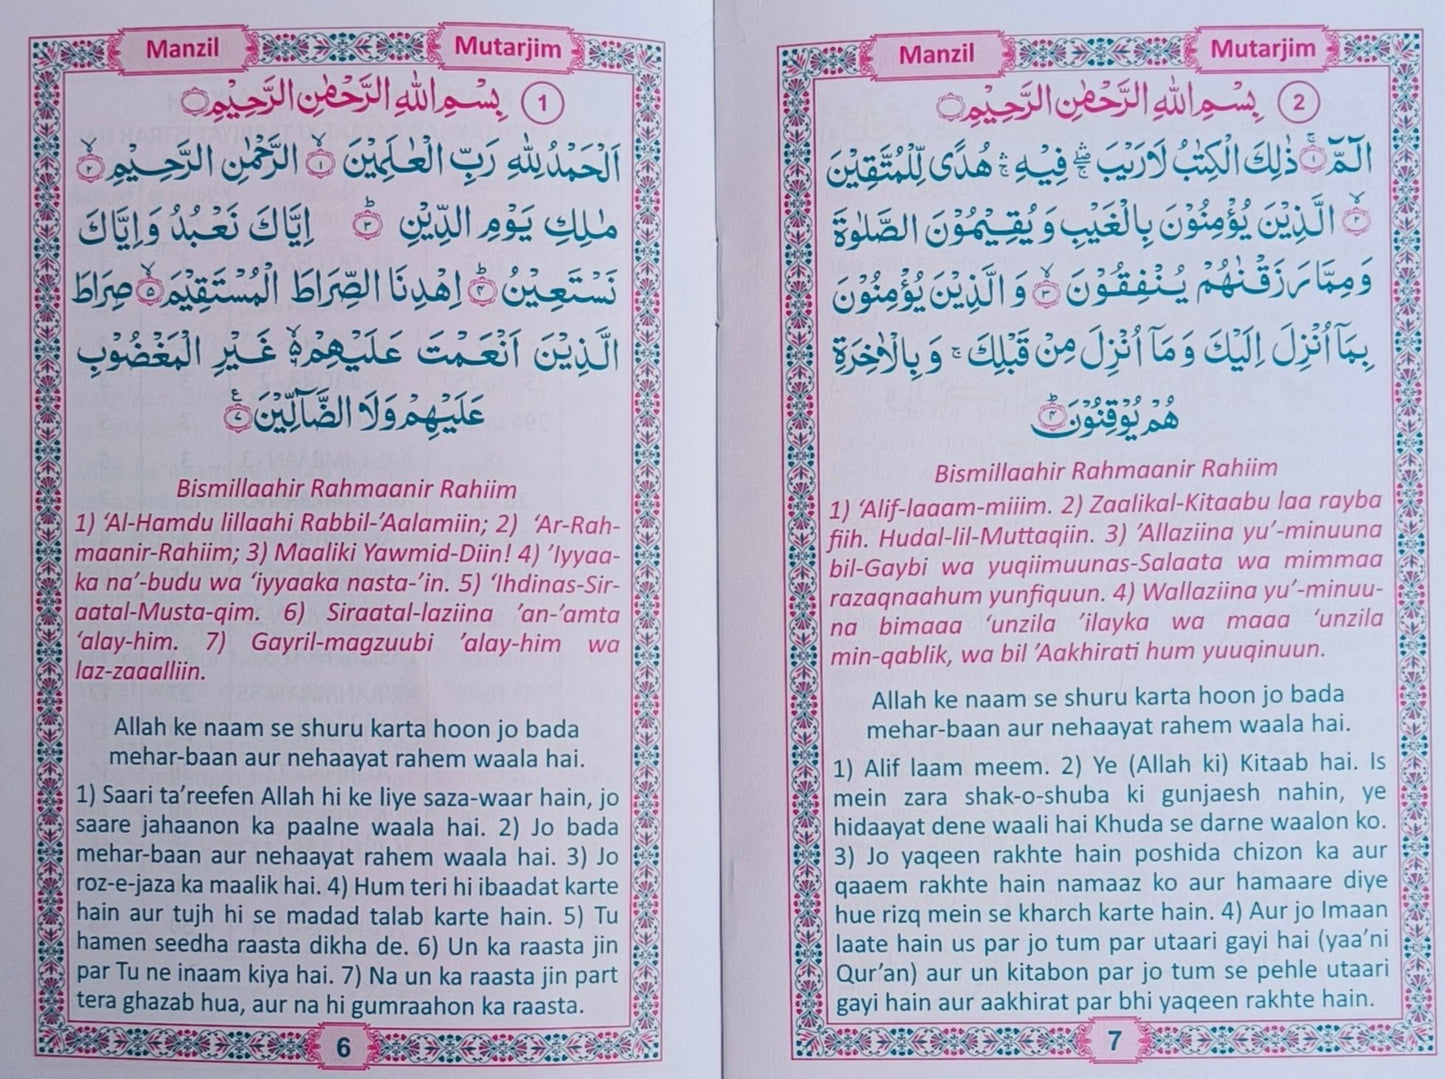 Manzil
Mutarjim
بِسْمِ اللّٰهِ الرَّحْمٰنِ الرَّحِيْمِ 1
اَلْحَمْدُ لِلّٰهِ رَبِّ الْعٰلَمِيْنَ ۙ‏﴿۱﴾ الرَّحْمٰنِ الرَّحِيْمِ ۙ‏﴿۲﴾
مٰلِكِ يَوْمِ الدِّيْنِ ؕ‏﴿۳﴾ اِيَّاكَ نَعْبُدُ وَاِيَّاكَ
نَسْتَعِيْنُ ؕ‏﴿۴﴾ اِهْدِنَا الصِّرَاطَ الْمُسْتَقِيْمَ ۙ‏﴿۵﴾ صِرَاطَ
الَّذِيْنَ اَنْعَمْتَ عَلَيْهِمْ ۙ۬ۦ غَيْرِ الْمَغْضُوْبِ
عَلَيْهِمْ وَلَا الضَّآلِّيْنَ ﴿۷﴾
Bismillaahir Rahmaanir Rahiim
1) ‘Al-Hamdu lillaahi Rabbil-’Aalamiin; 2) ‘Ar-Rah-
maanir-Rahiim; 3) Maaliki Yawmid-Diin! 4) ’Iyyaa-
ka na’-budu wa ‘iyyaaka nasta-’in. 5) ‘Ihdinas-Sir-
aatal-Musta-qim. 6) Siraatal-laziina ’an-’amta
‘alay-him. 7) Gayril-magzuubi ’alay-him wa
laz-zaaalliin.
Allah ke naam se shuru karta hoon jo bada
mehar-baan aur nehaayat rahem waala hai.
1) Saari ta’reefen Allah hi ke liye saza-waar hain, jo
saare jahaanon ka paalne waala hai. 2) Jo bada
mehar-baan aur nehaayat rahem waala hai. 3) Jo
roz-e-jaza ka maalik hai. 4) Hum teri hi ibaadat karte
hain aur tujh hi se madad talab karte hain. 5) Tu
hamen seedha raasta dikha de. 6) Un ka raasta jin
par Tu ne inaam kiya hai. 7) Na un ka raasta jin part
tera ghazab hua, aur na hi gumraahon ka raasta.
6
Manzil
Mutarjim
بِسْمِ اللّٰهِ الرَّحْمٰنِ الرَّحِيْمِ 2
الٓمّٓ ۚ‏﴿۱﴾ ذٰلِكَ الْكِتٰبُ لَا رَيْبَ ۛۖ فِيْهِ ۛۚ هُدًى لِّلْمُتَّقِيْنَ
ۙ‏﴿۲﴾ الَّذِيْنَ يُؤْمِنُوْنَ بِالْغَيْبِ وَيُقِيْمُوْنَ الصَّلٰوةَ
وَمِمَّا رَزَقْنٰهُمْ يُنْفِقُوْنَ ۙ‏﴿۳﴾ وَالَّذِيْنَ يُؤْمِنُوْنَ
بِمَآ اُنْزِلَ اِلَيْكَ وَمَآ اُنْزِلَ مِنْ قَبْلِكَ ۚ وَبِالْاٰخِرَةِ
هُمْ يُوْقِنُوْنَ ؕ‏﴿۴﴾
Bismillaahir Rahmaanir Rahiim
1) ‘Alif-laaam-miiim. 2) Zaalikal-Kitaabu laa rayba
fiih. Hudal-lil-Muttaqiin. 3) ’Allaziina yu’-minuuna
bil-Gaybi wa yuqiimuunas-Salaata wa mimmaa
razaqnaahum yunfiquun. 4) Wallaziina yu’-minuu-
na bimaaa ‘unzila ’ilayka wa maaa ‘unzila
min-qablik, wa bil ’Aakhirati hum yuuqinuun.
Allah ke naam se shuru karta hoon jo bada
mehar-baan aur nehaayat rahem waala hai.
1) Alif laam meem. 2) Ye (Allah ki) Kitaab hai. Is
mein zara shak-o-shuba ki gunjaesh nahin, ye
hidaayat dene waali hai Khuda se darne waalon ko.
3) Jo yaqeen rakhte hain poshida chizon ka aur
qaaem rakhte hain namaaz ko aur hamaare diye
hue rizq mein se kharch karte hain. 4) Aur jo Imaan
laate hain us par jo tum par utaari gayi hai (yaa’ni
Qur’an) aur un kitabon par jo tum se pehle utaari
gayi hain aur aakhirat par bhi yaqeen rakhte hain.
7